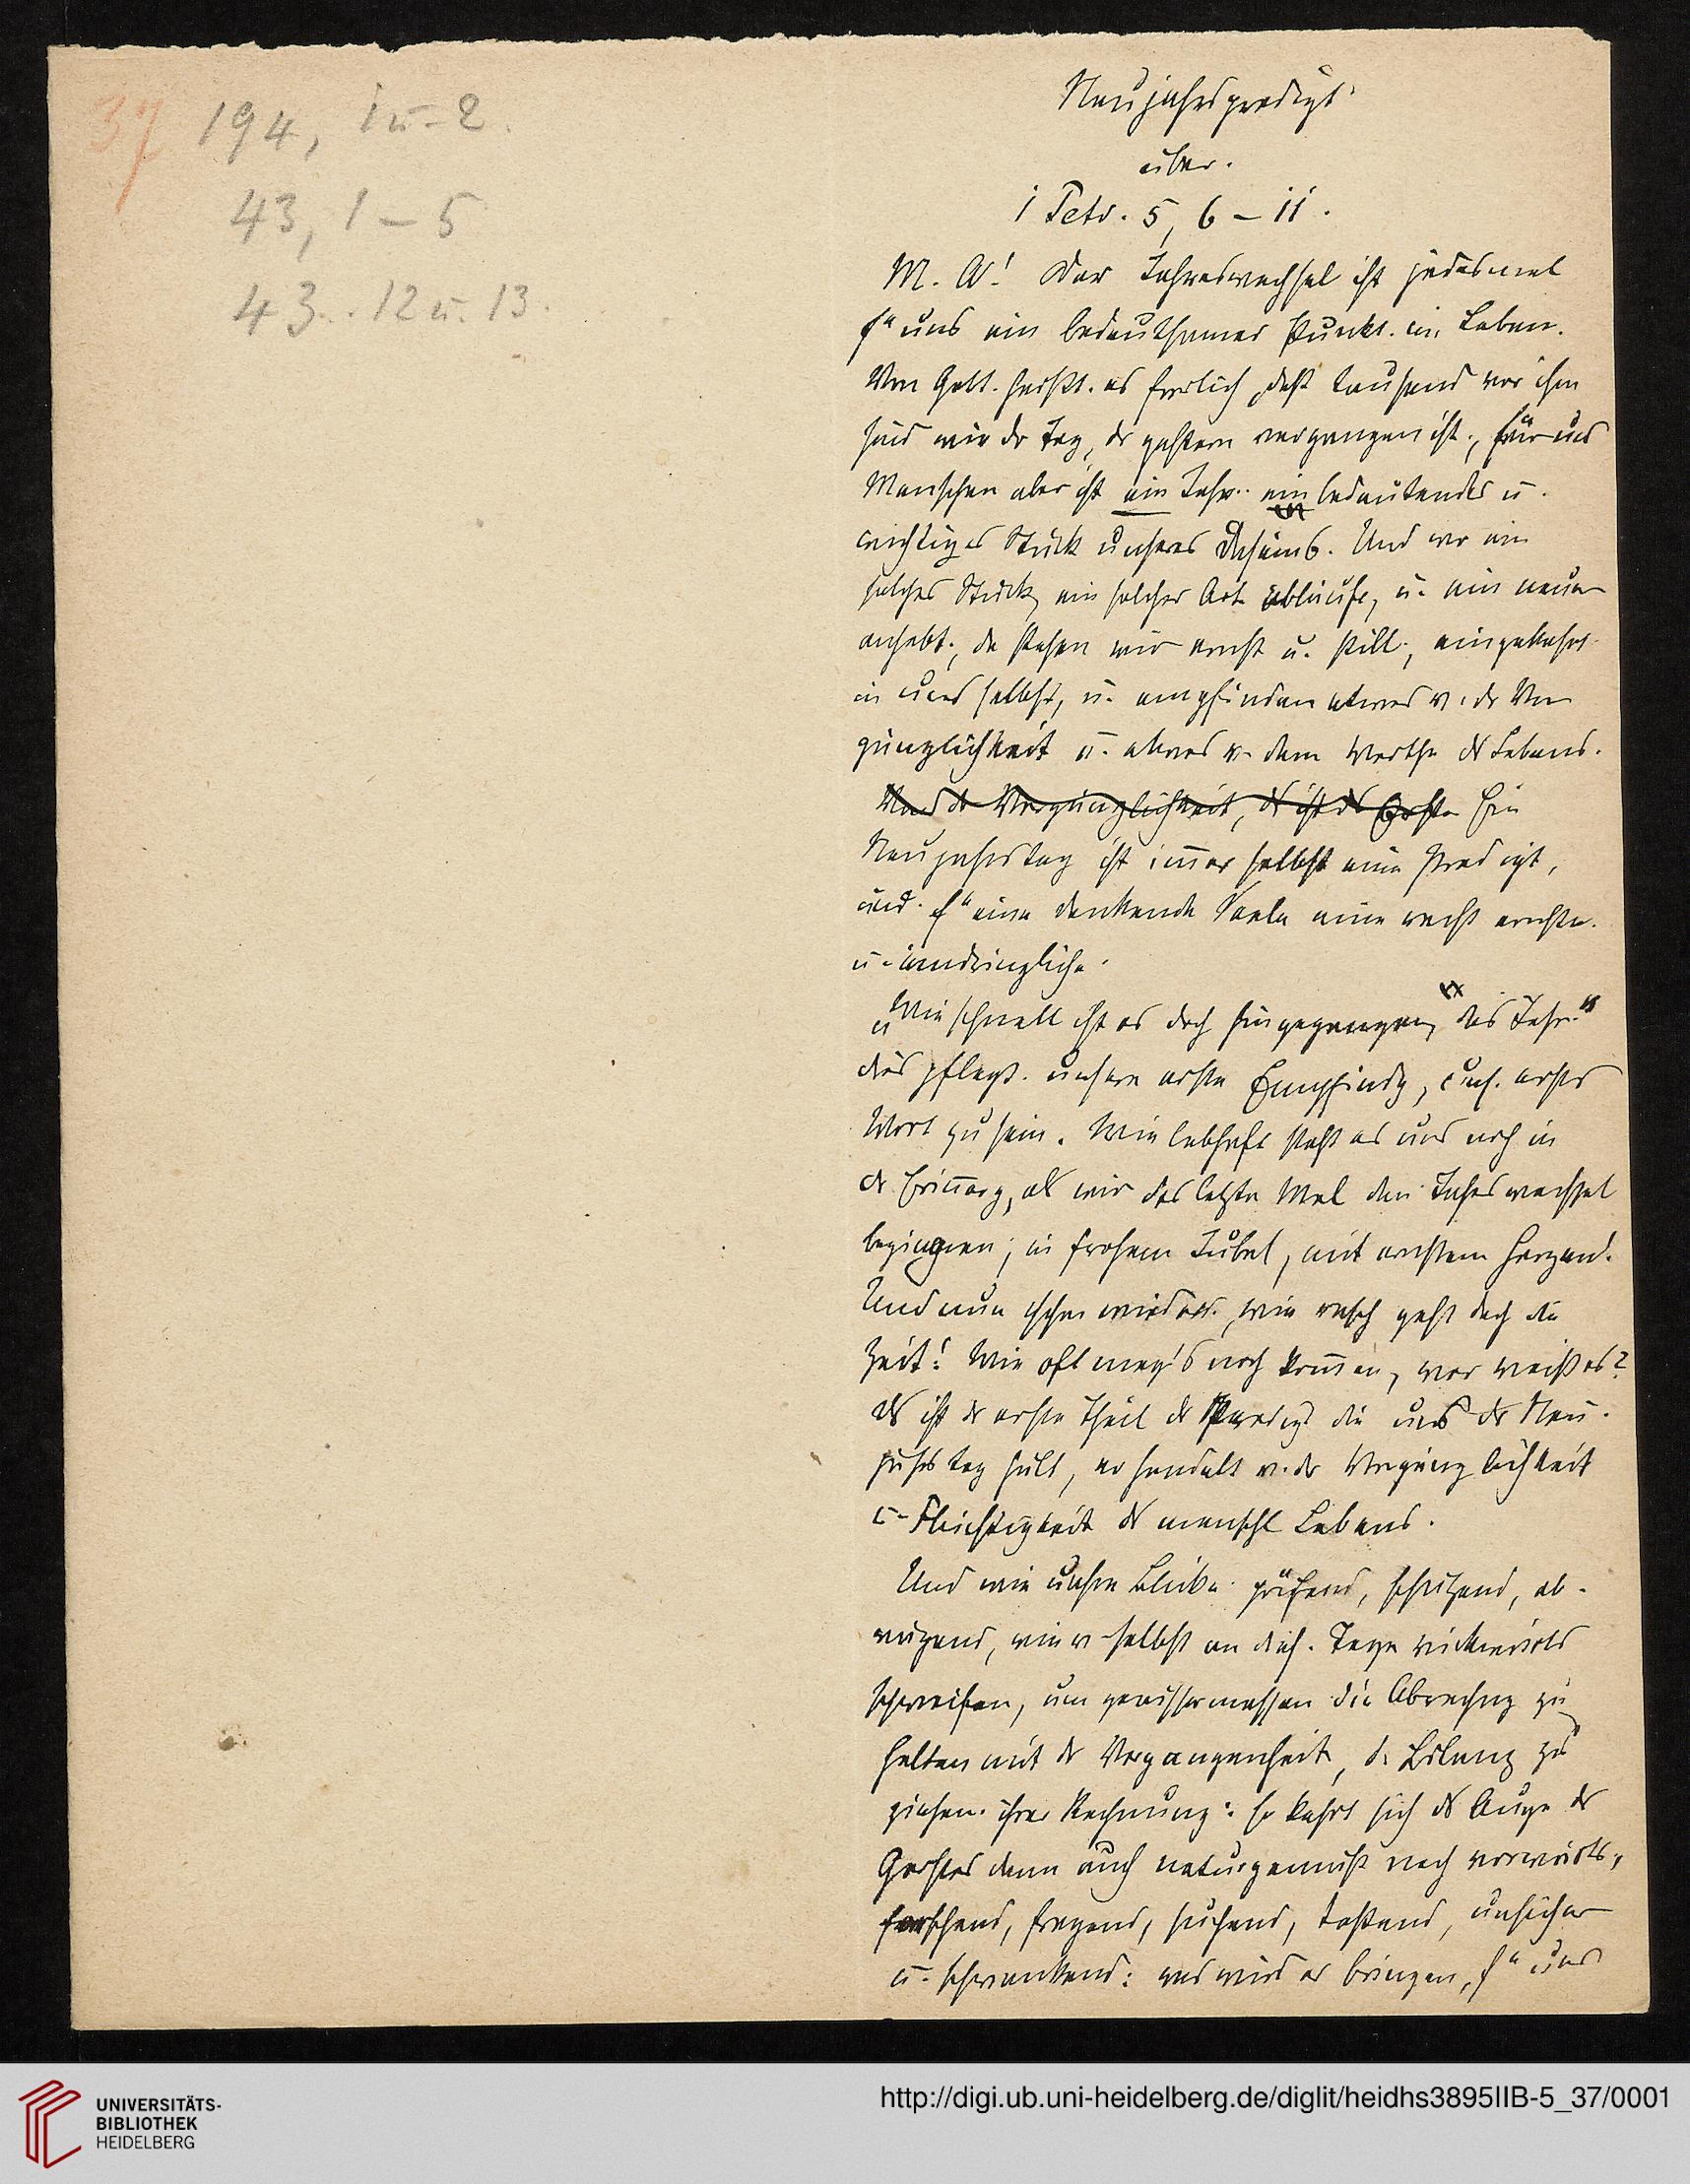 37 194, 1 u. 2.
43, 1 – 5
43. 12 u. 13.
Neujahrspredigt
über
1 Petr. 5, 6 – 11.
M. A! Der Jahreswechsel ist jedesmal
f. uns ein bedeutsamer Punkt im Leben.
Von Gott heißt es freilich, daß tausend vor ihm
sind wie der Tag, der gestern vergangen ist, für uns
Menschen aber ist ein Jahr ein bedeutendes u.
wichtiges Stück unseres Daseins. Und wo ein
solches Stück, ein solcher abläuft, u. ein neuer
anhebt, da stehen wir ernst u. still, eingekehrt
in uns selbst, u. empfinden etwas v. der Ver
gänglichkeit u. etwas v. dem Werthe des Lebens.
Und die Vergänglichkeit, das ist das Erste Ein
Neujahrstag ist immer selbst eine Predigt,
und f. eine denkende Seele eine recht ernste
u. eindringliche.
„Wie schnell ist es doch hingegangen, das Jahr“
dies pflegt unsere erste Empfindg, uns. erstes
Wort zu sein. Wie lebhaft steht es uns noch in
der Erinnerg, als wir das letzte Mal den Jahreswechsel
begingen; in frohem Jubel, mit ernstem Herzen.
Und nun schon wieder, wie rasch geht doch die
Zeit! Wie oft mag's noch kommen, wer weiß es?
das ist der erste Theil der Predigt die uns der Neu-
jahrstag hält, er handelt v. der Vergänglichkeit
u. Flüchtigkeit des menschl Lebens.
Und wie unsre Blicke prüfend, schätzend, ab-
wägend, wie v. selbst an dies. Tage rückwärts
schweifen, um gewissermassen die Abrechng zu
halten mit der Vergangenheit, d. Bilanz zu
ziehen ihrer Rechnung: so kehrt sich das Auge des
Geistes dann auch naturgemäß nach vorwärts,
forschend, fragend, suchend, tastend, unsicher
u. schwankend: was wird es bringen, f. uns
UNIVERSITÄTS-
BIBLIOTHEK
HEIDELBERG
http://digi.ub.uni-heidelberg.de/diglit/heidhs3895IIB-5_37/0001